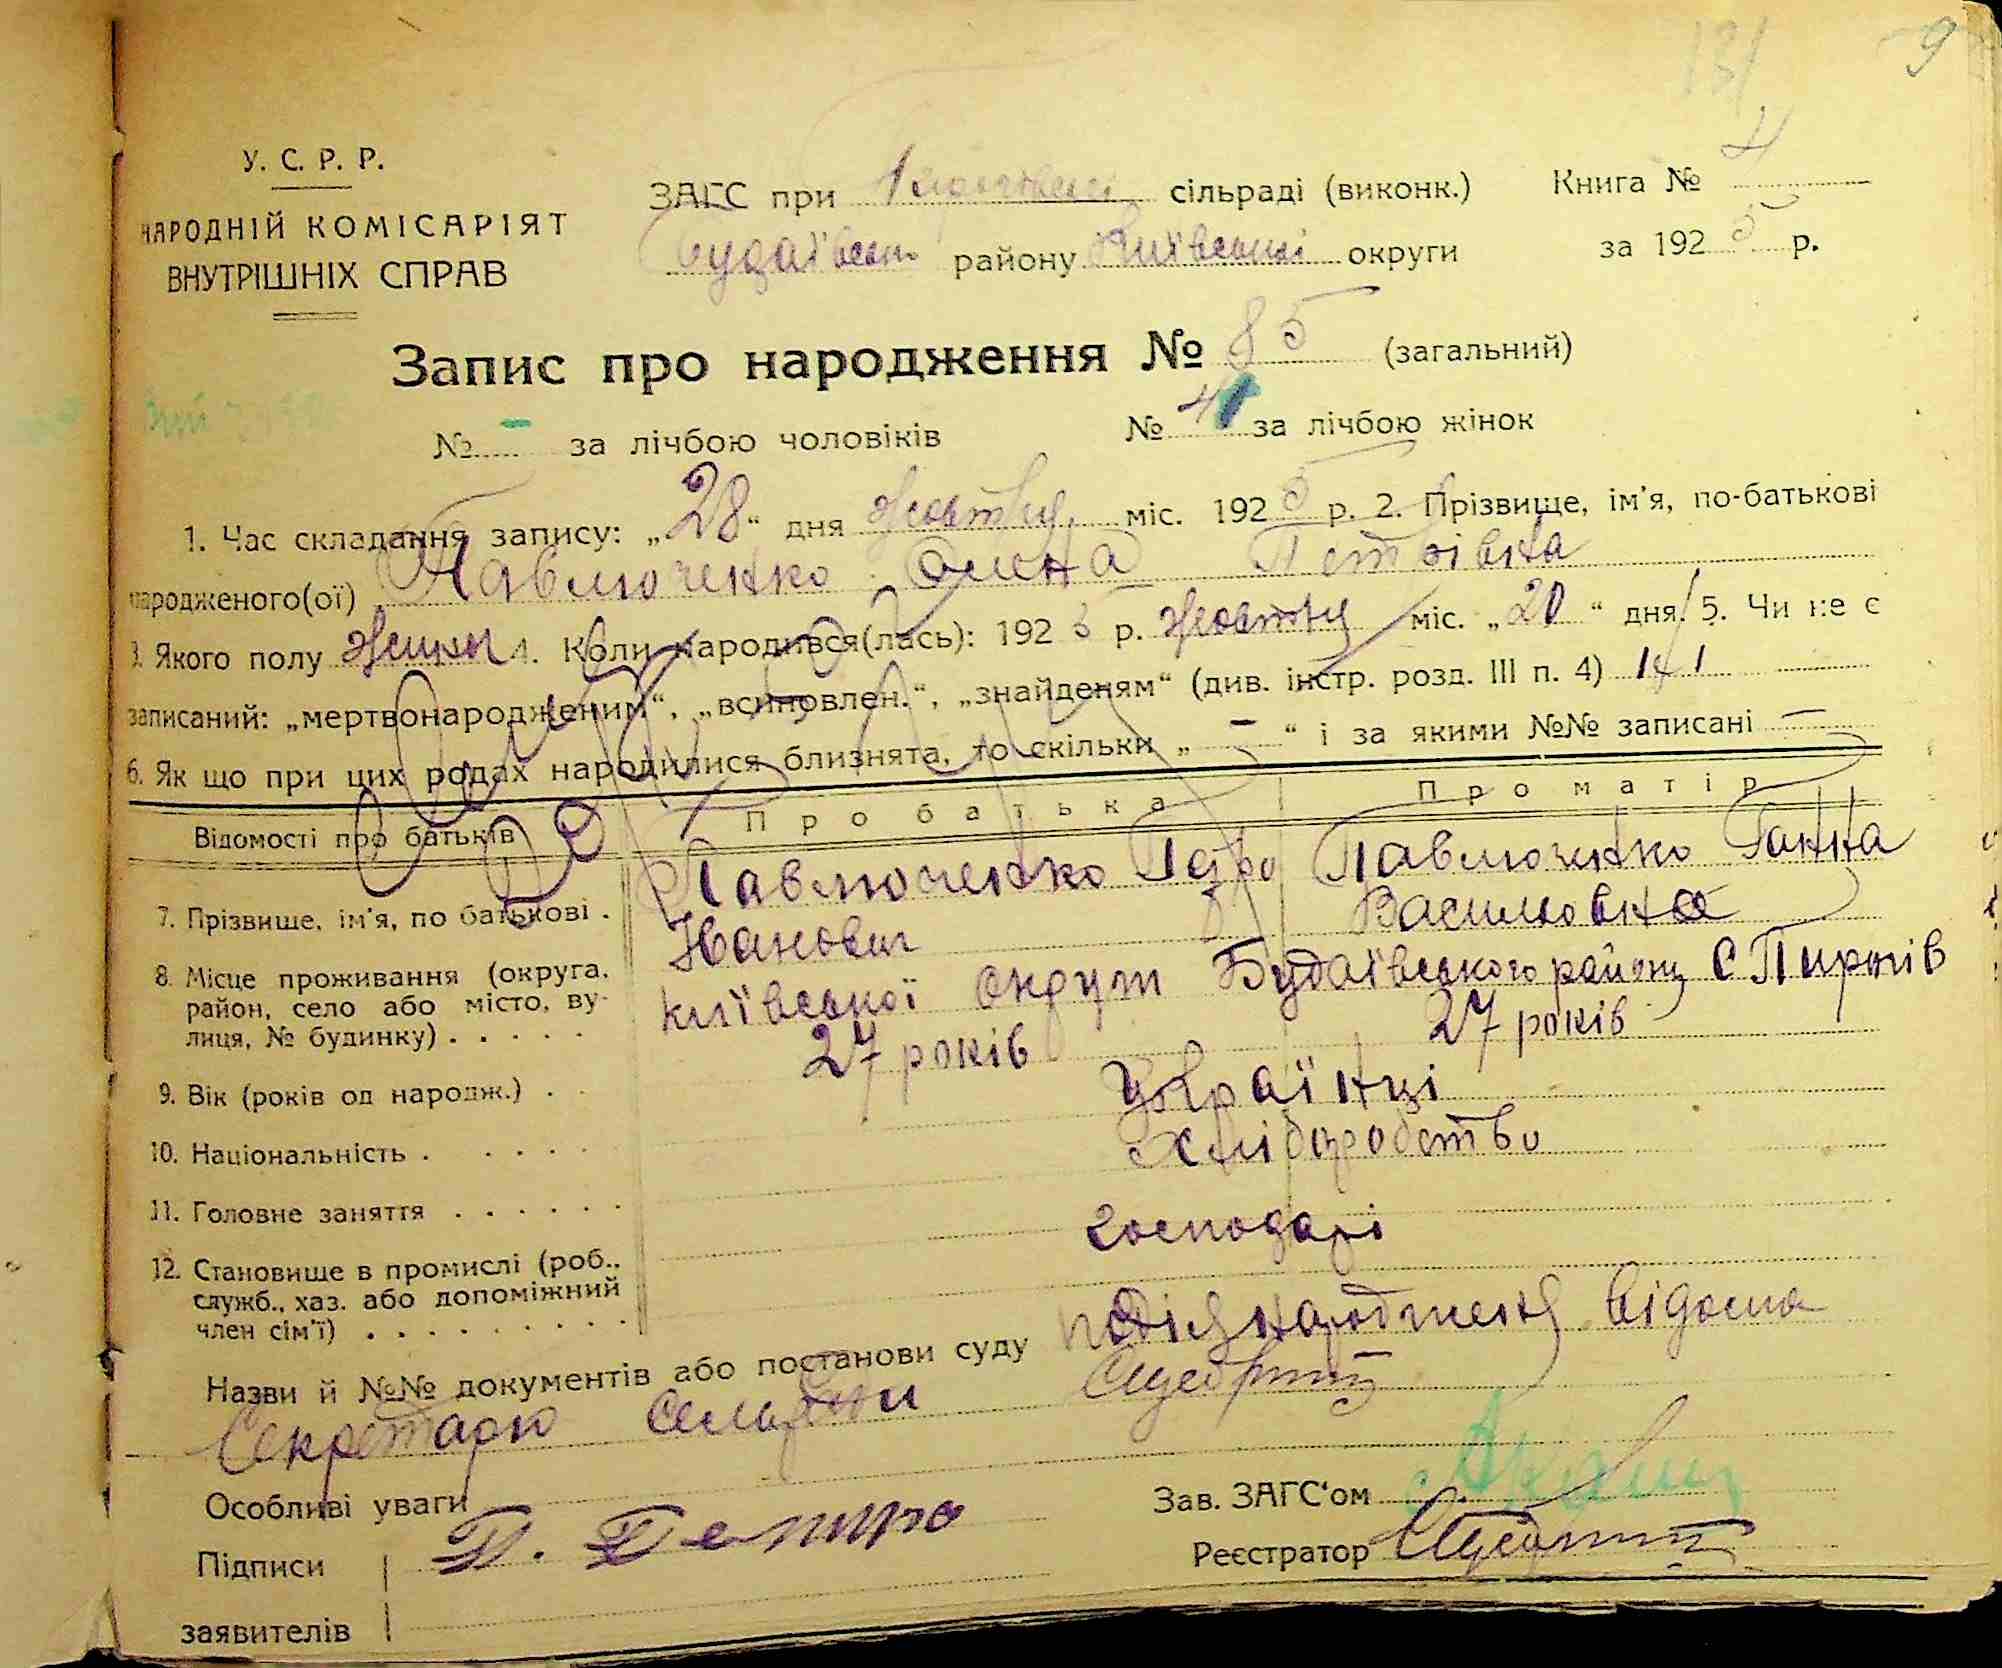 9
У. С. Р. Р.
НАРОДНІЙ КОМІСАРІЯТ
ВНУТРІШНІХ СПРАВ
ЗАГС при сільраді (виконк.) Книга № 4
Будаївськ району Київської округи за 1925 р.
Запис про народження № 85 (загальний)
№ - за лічбою чоловіків № 41 за лічбою жінок
1. Час складання запису: „28“ дня жовтня міс. 1925 р. 2. Прізвище, ім'я, по-батькові
народженого(ої) Павлюченко Олена Петрівна
3. Якого полу жіноч 4. Коли народився(лась): 1925 р. жовтня міс. „20“ дня. 5. Чи не є
записаний: „мертвонародженим“, „всиновлен.“, „знайденям“ (див. інстр. розд. III п. 4)
6. Як що при цих родах народилися близнята, то скільки „ – “ і за якими №№ записані –
Відомості про батьків Про батька Про матір
7. Прізвище, ім'я, по батькові . Павлюченко Петро Павлюченко Ганна
Іванович Васильовна
8. Місце проживання (округа, район, село або місто, вулиця, № будинку) . . . . . Київської округи Будаївського району С Пирогів
9. Вік (років од народж.) . . 27 років 27 років
10. Національність . . . . . . Українці
11. Головне заняття . . . . . . хліборобство
12. Становище в промислі (роб., служб., хаз. або допоміжний член сім'ї) . . . . . . . . . господарі
Назви й №№ документів або постанови суду подія народженя відома
Секретарю сельради
Особливі уваги
Зав. ЗАГС'ом
Підписи
заявителів
Реєстратор